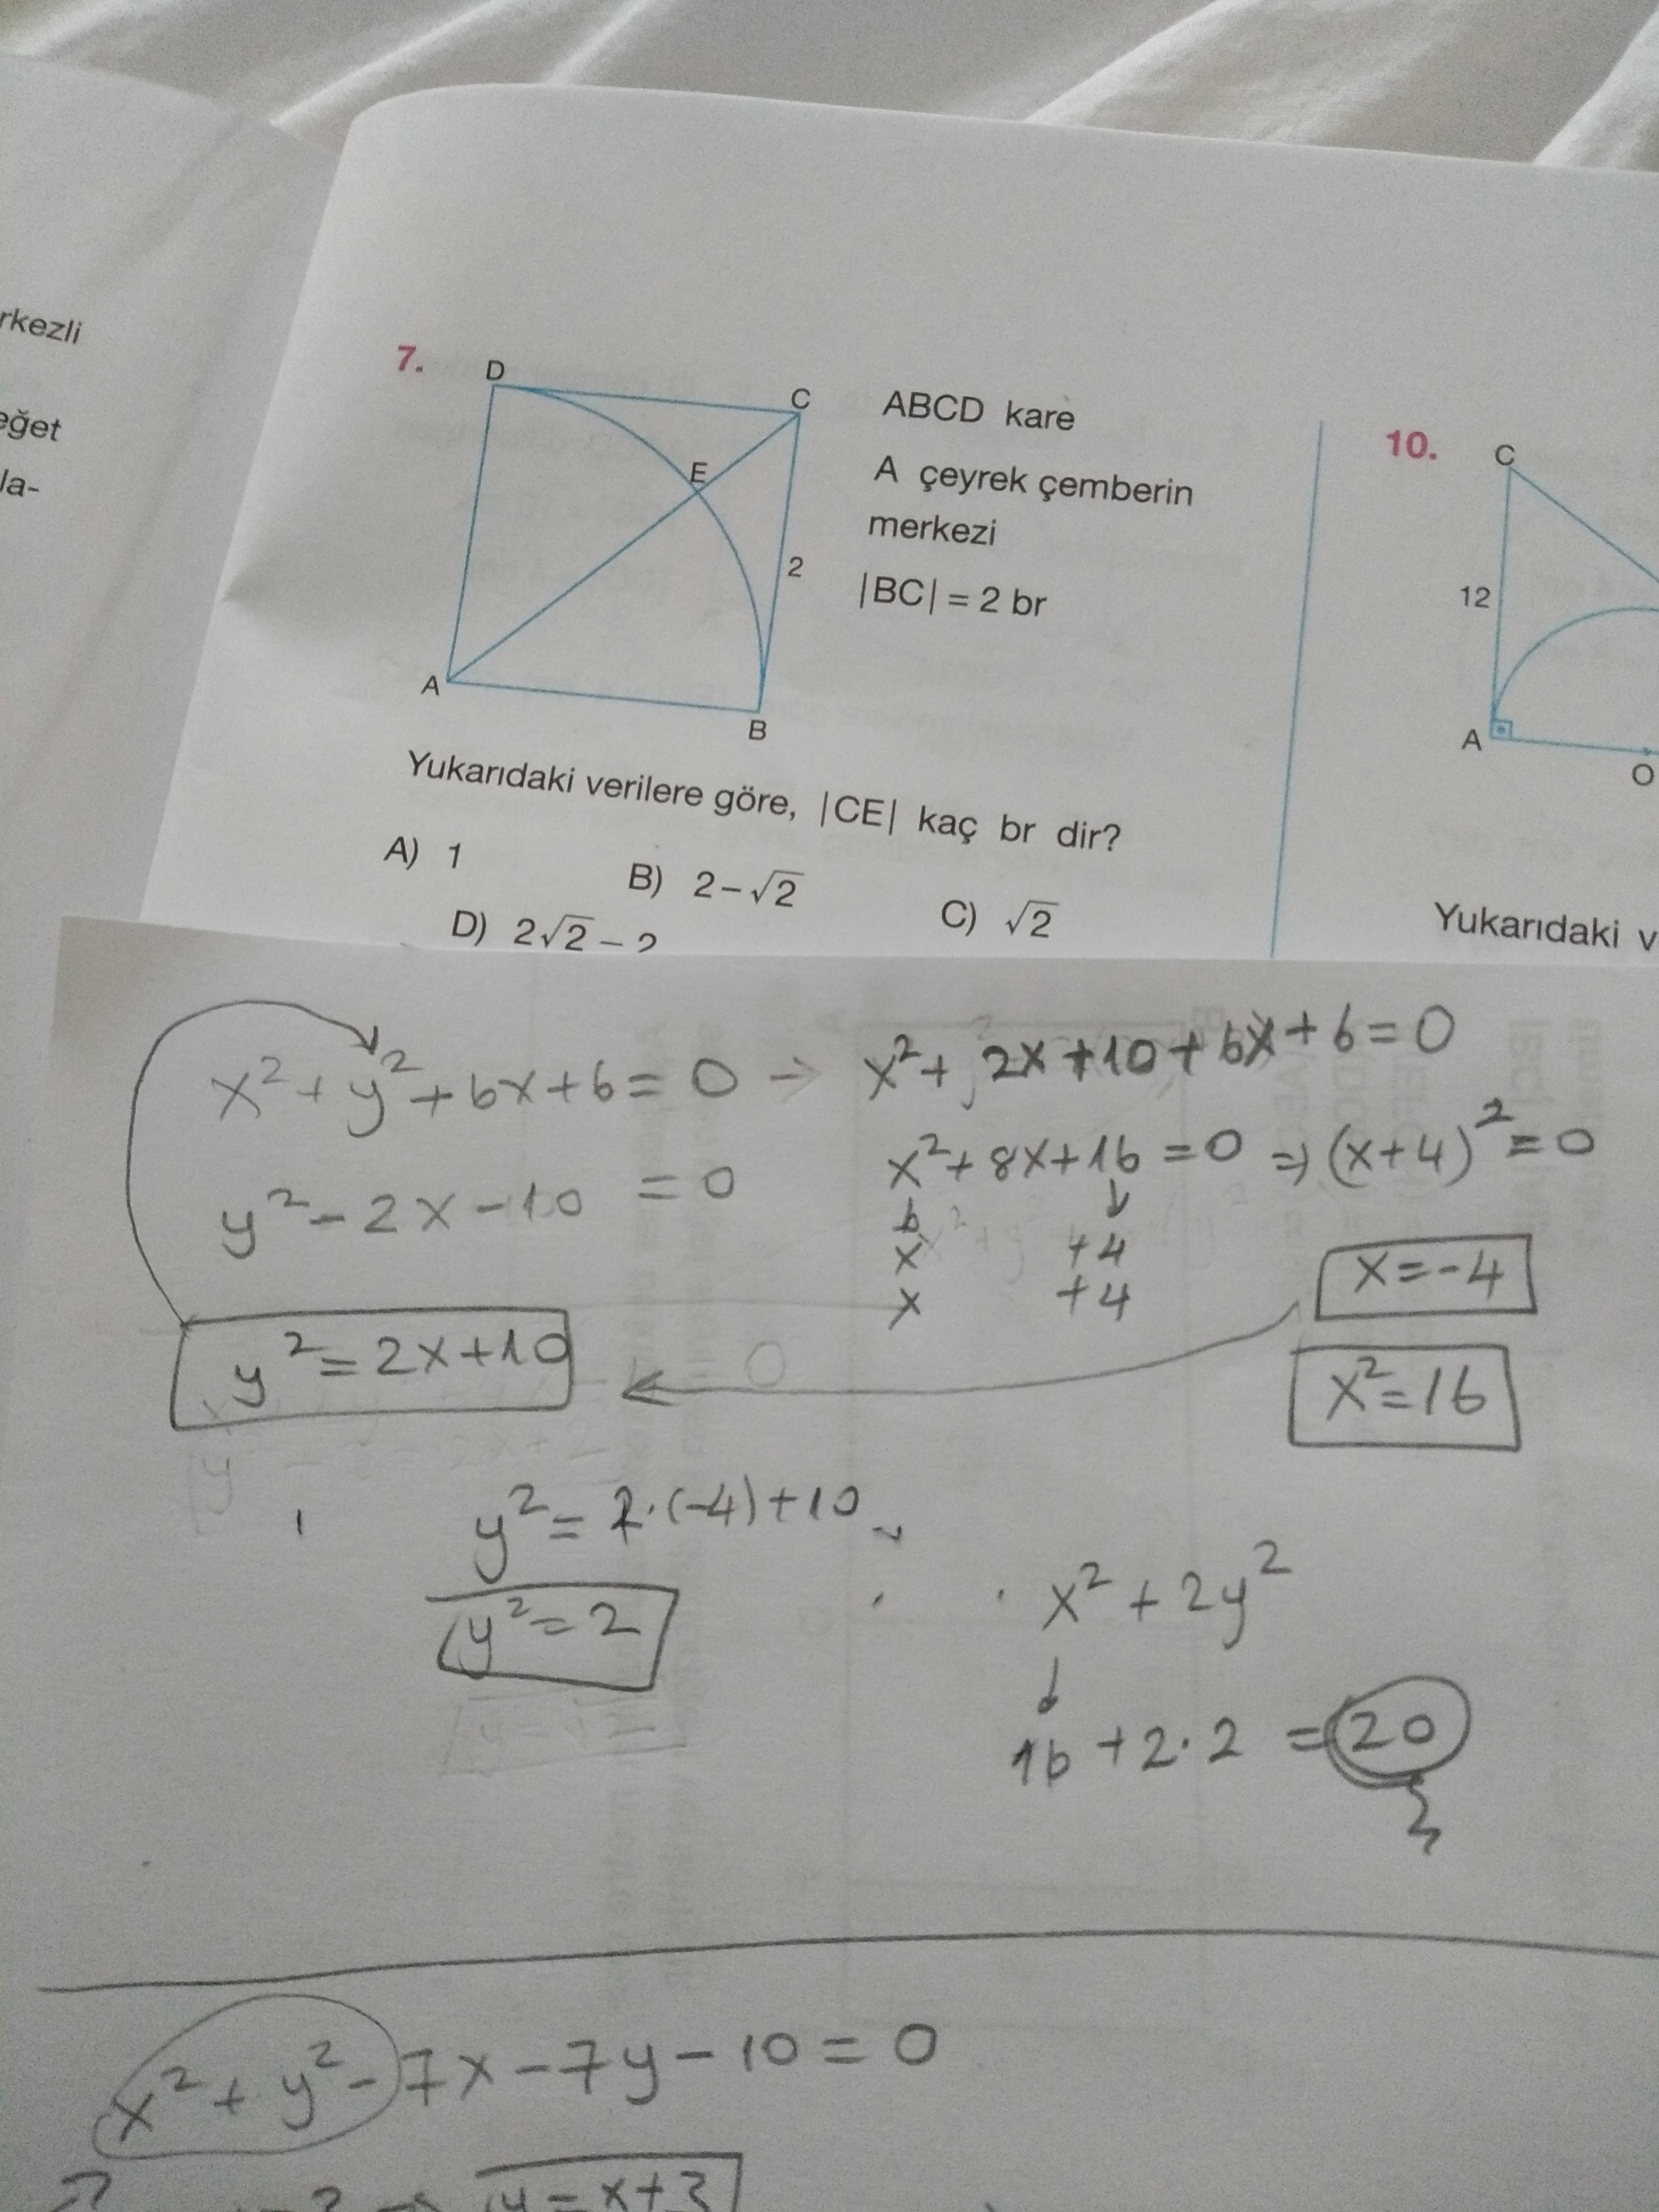 rkezli
eğet
la-
7.
D
C
E
2
A
B
ABCD kare
A çeyrek çemberin
merkezi
|BC| = 2 br
Yukarıdaki verilere göre, |CE| kaç br dir?
A) 1
B) 2-√2
C) √2
D) 2√2 - 2
10.
C
12
A
O
Yukarıdaki v
x²+y²+6x+6=0 → x²+2x+10+6x+6=0
y²-2x-10=0
x²+8x+16=0 ⇒ (x+4)²=0
x +4
x +4
x=-4
y²=2x+10
x²=16
y²=2.(-4)+10
y²=2
x²+2y²
16+2.2=20
x²+y²-7x-7y-10=0
y=x+3